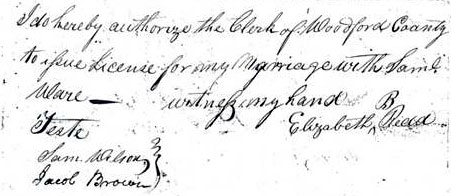 I do hereby authorize the Clerk of Woodford County
to issue License for my Marriage with Saml.
Ware — witness my hand B
Elizabeth ^ Redd
Teste
Sam. Wilson
Jacob Brown